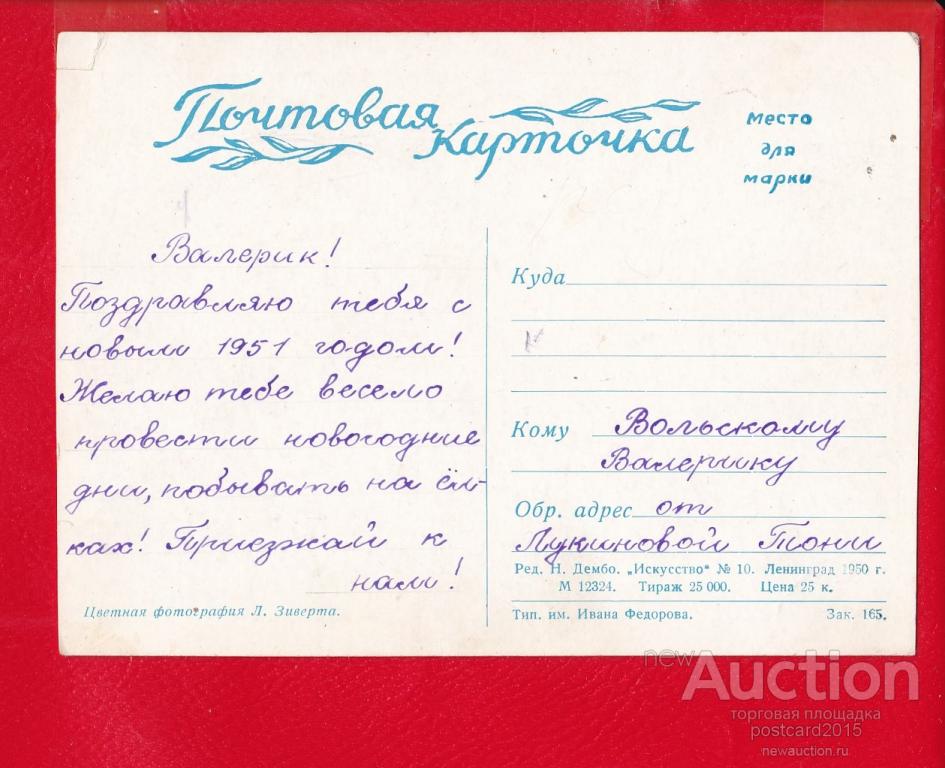 Почтовая
Карточка
Место
для
марки
Валерик!
Поздравляю тебя с
новым 1951 годом!
Желаю тебе весело
провести новогодние
дни, побывать на ёл-
ках! Приезжай к
нам!
Цветная фотография Л. Зиверта.
Куда
Кому Вольскому
Валерику
Обр. адрес от
Лукиновой Тони
Ред. Н. Дембо. „Искусство“ № 10. Ленинград 1950 г.
М 12324. Тираж 25 000. Цена 25 к.
Тип. им. Ивана Федорова. Зак. 165.
newAuction
торговая площадка
postcard2015
newauction.ru